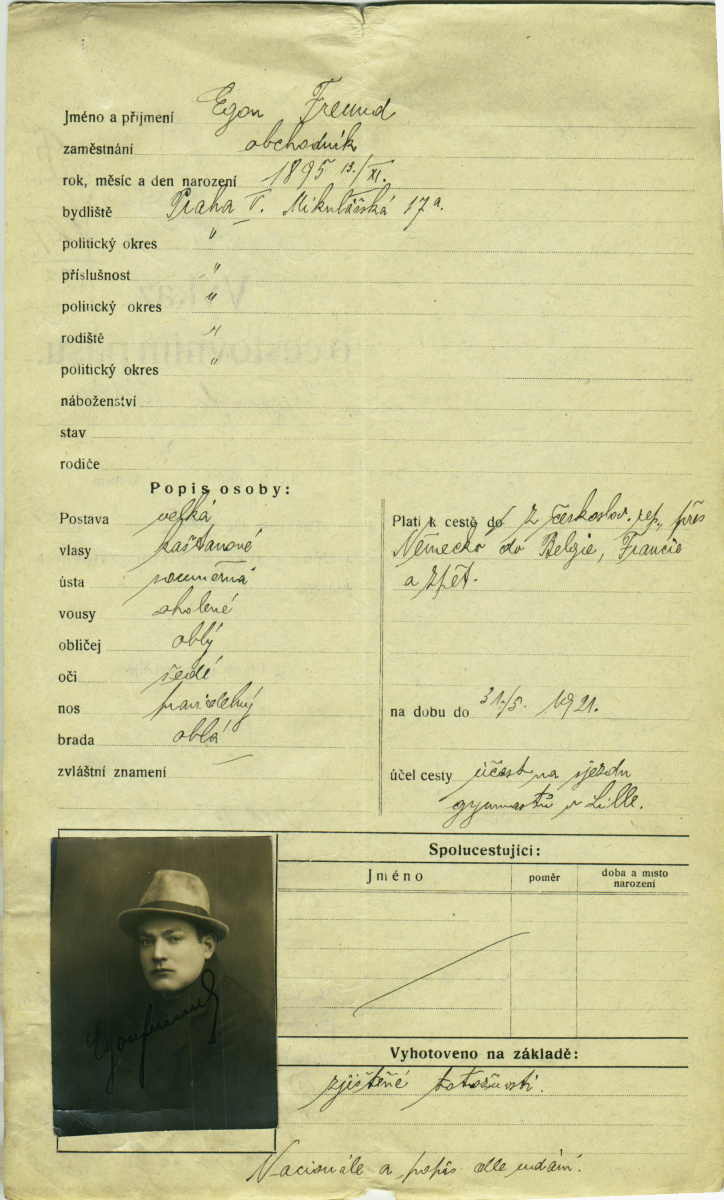 Jméno a příjmení Egon Freund
zaměstnání obchodník
rok, měsíc a den narození 1895 19./XI.
bydliště Praha V. Mikulášská 17a.
politický okres "
příslušnost "
politický okres "
rodiště "
politický okres "
náboženství
stav
rodiče
Popis osoby:
Postava velká
vlasy kaštanové
ústa souměrná
vousy oholené
obličej oblý
oči šedé
nos pravidelný
brada oblá
zvláštní znamení —
Platí k cestě do z českoslov. rep., přes
Německo do Belgie, Francie
a zpět.
na dobu do 31./5. 1921.
účel cesty účast na sjezdu
gymnastů v Lille.
Spolucestující:
Jméno poměr doba a místo narození
Egon Freund
Vyhotoveno na základě:
zjištěné totožnosti.
Nacionále a popis dle udání.